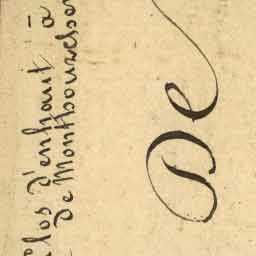 Clos d'enhaut à
de Montbouzeber
De